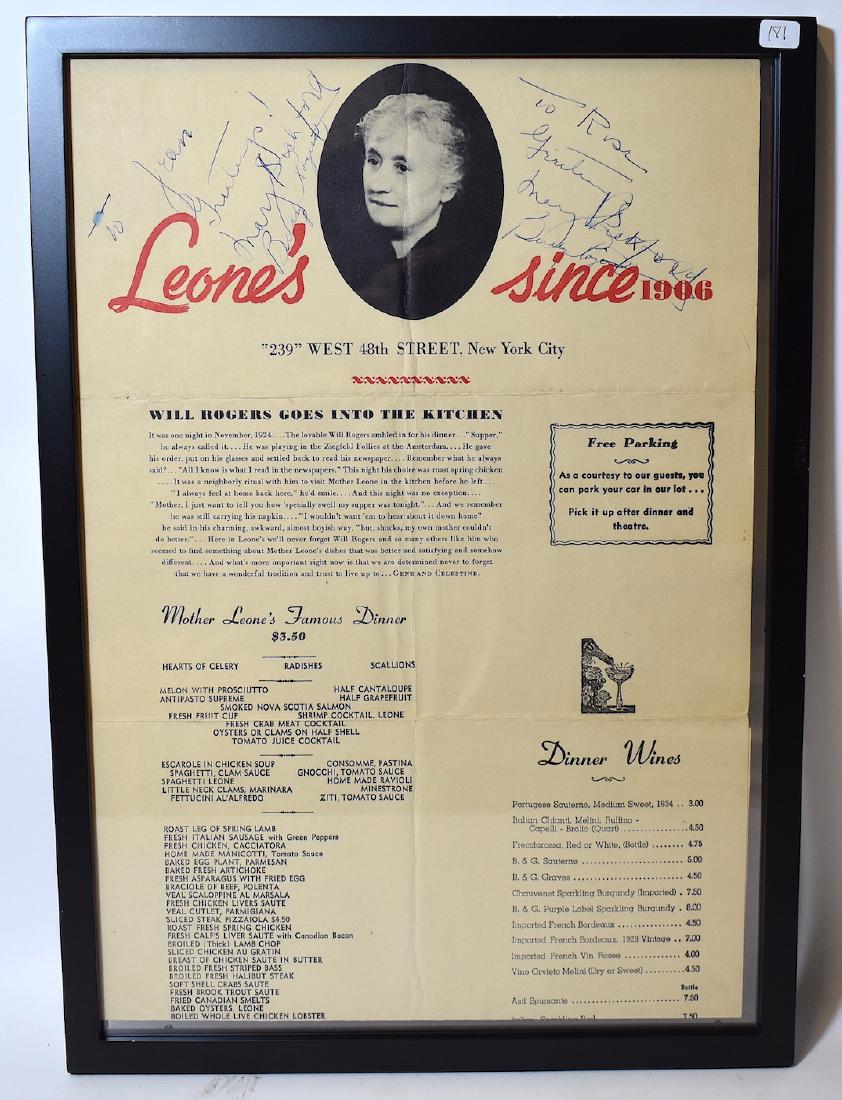 181
To Jean
Greetings!
Mary Pickford
To Rose
Mary Pickford
Leone's since 1906
"239" WEST 48th STREET, New York City
WILL ROGERS GOES INTO THE KITCHEN
It was one night in November, 1924.... The lovable Will Rogers ambled in for his dinner..." Supper,"
he always called it.... He was playing in the Ziegfeld Follies at the Amsterdam.... He gave
his order, put on his glasses and settled back to read his newspaper.... Remember what he always
said?... "All I know is what I read in the newspapers." This night his choice was roast spring chicken
.... It was a neighborly ritual with him to visit Mother Leone in the kitchen before he left...
"I always feel at home back here," he'd smile.... And this night was no exception....
"Mother, I just want to tell you how 'specially swell my supper was tonight."... And we remember
he was still carrying his napkin.... "I wouldn't want 'em to hear about it down home"
he said in his charming, awkward, almost boyish way, "but, shucks, my own mother couldn't
do better."... Here in Leone's we'll never forget Will Rogers and so many others like him who
seemed to find something about Mother Leone's dishes that was better and satisfying and somehow
different.... And what's more important right now is that we are determined never to forget
that we have a wonderful tradition and trust to live up to... GENE AND CELESTINE.
Free Parking
As a courtesy to our guests, you
can park your car in our lot...
Pick it up after dinner and
theatre.
Mother Leone's Famous Dinner
$3.50
HEARTS OF CELERY RADISHES SCALLIONS
MELON WITH PROSCIUTTO HALF CANTALOUPE
ANTIPASTO SUPREME HALF GRAPEFRUIT
SMOKED NOVA SCOTIA SALMON
FRESH FRUIT CUP SHRIMP COCKTAIL, LEONE
FRESH CRAB MEAT COCKTAIL
OYSTERS OR CLAMS ON HALF SHELL
TOMATO JUICE COCKTAIL
ESCAROLE IN CHICKEN SOUP CONSOMME, PASTINA
SPAGHETTI, CLAM SAUCE GNOCCHI, TOMATO SAUCE
SPAGHETTI LEONE HOME MADE RAVIOLI
LITTLE NECK CLAMS, MARINARA MINESTRONE
FETTUCINI AL'ALFREDO ZITI, TOMATO SAUCE
ROAST LEG OF SPRING LAMB
FRESH ITALIAN SAUSAGE with Green Peppers
FRESH CHICKEN, CACCIATORA
HOME MADE MANICOTTI, Tomato Sauce
BAKED EGG PLANT, PARMESAN
BAKED FRESH ARTICHOKE
FRESH ASPARAGUS WITH FRIED EGG
BRACIOLE OF BEEF, POLENTA
VEAL SCALOPPINE AL MARSALA
FRESH CHICKEN LIVERS SAUTE
VEAL CUTLET, PARMIGIANA
SLICED STEAK PIZZAIOLA $4.50
ROAST FRESH SPRING CHICKEN
FRESH CALF'S LIVER SAUTE with Canadian Bacon
BROILED (Thick) LAMB CHOP
SLICED CHICKEN AU GRATIN
BREAST OF CHICKEN SAUTE IN BUTTER
BROILED FRESH STRIPED BASS
BROILED FRESH HALIBUT STEAK
SOFT SHELL CRABS SAUTE
FRESH BROOK TROUT SAUTE
FRIED CANADIAN SMELTS
BAKED OYSTERS, LEONE
BOILED WHOLE LIVE CHICKEN LOBSTER
Dinner Wines
Portugese Sauterne, Medium Sweet, 1934 .. 3.00
Italian Chianti, Melini, Ruffino -
Capelli - Brolio (Quart) ................4.50
Frecciarossa, Red or White, (Bottle) ........ 4.75
B. & G. Sauterne ......................... 5.00
B. & G. Graves ........................... 4.50
Chauvenet Sparkling Burgundy (Imported) . 7.50
B. & G. Purple Label Sparkling Burgundy . 8.00
Imported French Bordeaux ................. 4.50
Imported French Bordeaux, 1929 Vintage .. 7.00
Imported French Vin Rosee ................ 4.00
Vino Orvieto Melini (Dry or Sweet) .........4.50
Bottle
Asti Spumante ........................... 7.50
Italian Sparkling Red 7.50